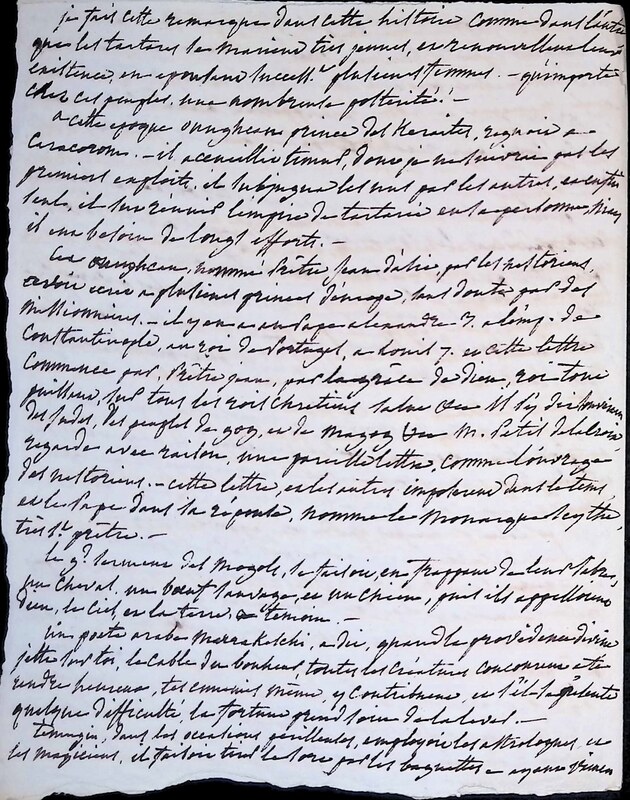 je fais cette remarque dans cette histoire comme dans l'autre
que les tartares se marient tres jeunes, et renouvellent leur
existence, en epousant success.t plusieurs femmes. - qu'importe
chez ces peuples une nombreuse postérité! -
a cette epoque oungh can prince des Keraites, regnoit a
Caracorom. - il accueillit temug, dont je ne suivrai pas les
premiers exploits, il subjugua les uns par les autres, et enfin
seul, il sut réunir l'empire de tartarie en sa personne, mais
il eut besoin de longs efforts. -
Cet oungh can, nommé Prêtre Jean d'asie, par les nestoriens,
avoit ecrit a plusieurs princes d'europe, sans doute par des
missionnaires. - il y en a au Pape alexandre 3. a l'emp. de
Constantinople, au roi de Portugal, a Louis 7. et cette lettre
commence par, Prêtre jean, par la grâce de Dieu, roi tout
puissant, sur tous les rois chretiens salut &c Il s'y dit souverain
des Indes, des peuples de gog, et de magog &c M. Petit delacroix
regarde avec raison, une pareille lettre, comme l'ouvrage
des nestoriens. - cette lettre, et les autres imposerent dans le tems,
et le Pape dans sa réponse, nomme le Monarque Scythe,
très s.t prêtre. -
Le g.d serment des Mogols, se faisoit, en frappant de leur sabre,
un cheval, un bœuf sauvage, et un chien, puis ils appelloient
Dieu, le ciel et la terre a temoin. -
Un poete arabe Marrakeschi, a dit, quand la providence divine
jette sur toi, le cable du bonheur, toutes les créatures concourent a te
rendre heureux, tes ennemis même, y contribuent, et s'il se présente
quelque difficulté, la fortune prend soin de la lever. -
temugin, dans les occasions perilleuses, employoit les astrologues et
les magiciens, il faisoit tirer le sort par les baguettes - ayant